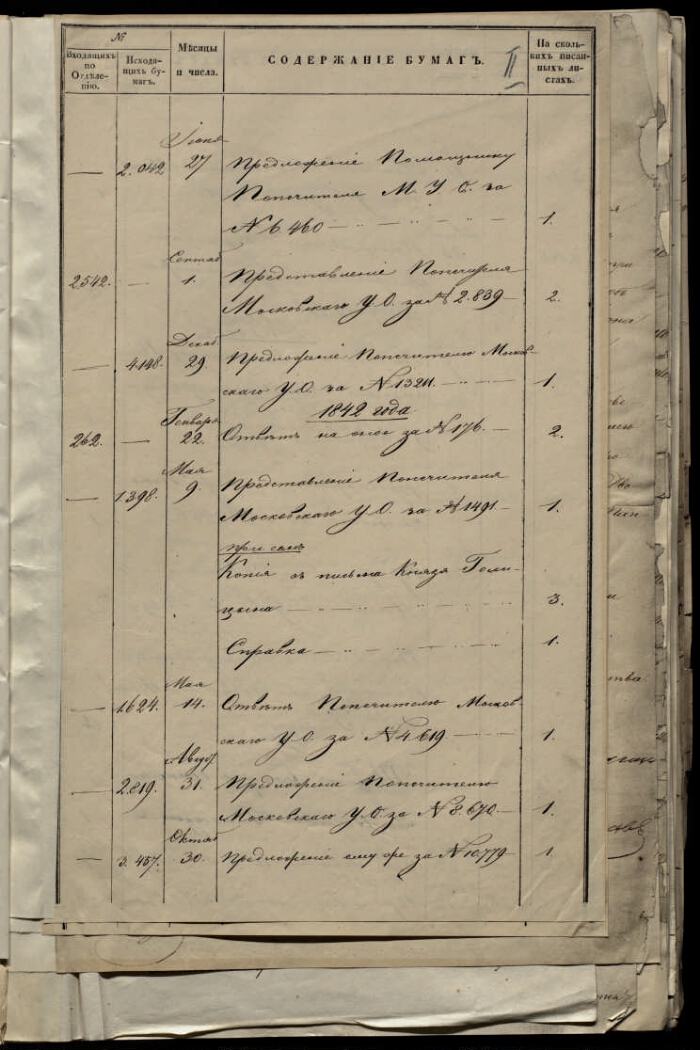 №
Входящихъ по Отдѣленію.
Исходящихъ бумагъ.
Мѣсяцы и числа.
СОДЕРЖАНІЕ БУМАГЪ.
II
На сколькихъ писанныхъ листахъ.
Іюня
— 2.042 27 Предложеніе Помощнику
Попечителя М. У. О. за
№ 6460 — 1.
Сентяб
2542. — 1. Представленіе Попечителя
Московскаго У. О. за № 2.839 — 2.
Декаб
— 4148. 29. Предложеніе Попечителю Москов-
скаго У. О. за № 13211. — 1.
1842 года
Генваря
262. — 22. Отвѣтъ на оное за № 176. — 2.
Мая
— 1398. 9. Представленіе Попечителя
Московскаго У. О. за № 1491 — 1.
При семъ
Копія съ письма Князя Голи-
цына — 3.
Справка — 1.
Мая
— 1.624. 14. Отвѣтъ Попечителю Москов-
скаго У. О. за № 4.619 — 1.
Авгус
— 2.819. 31. Предложеніе Попечителю
Московскаго У. О. за № 8.670. — 1.
Октяб
— 3.457. 30. Предложеніе ему же за № 10.779 1.